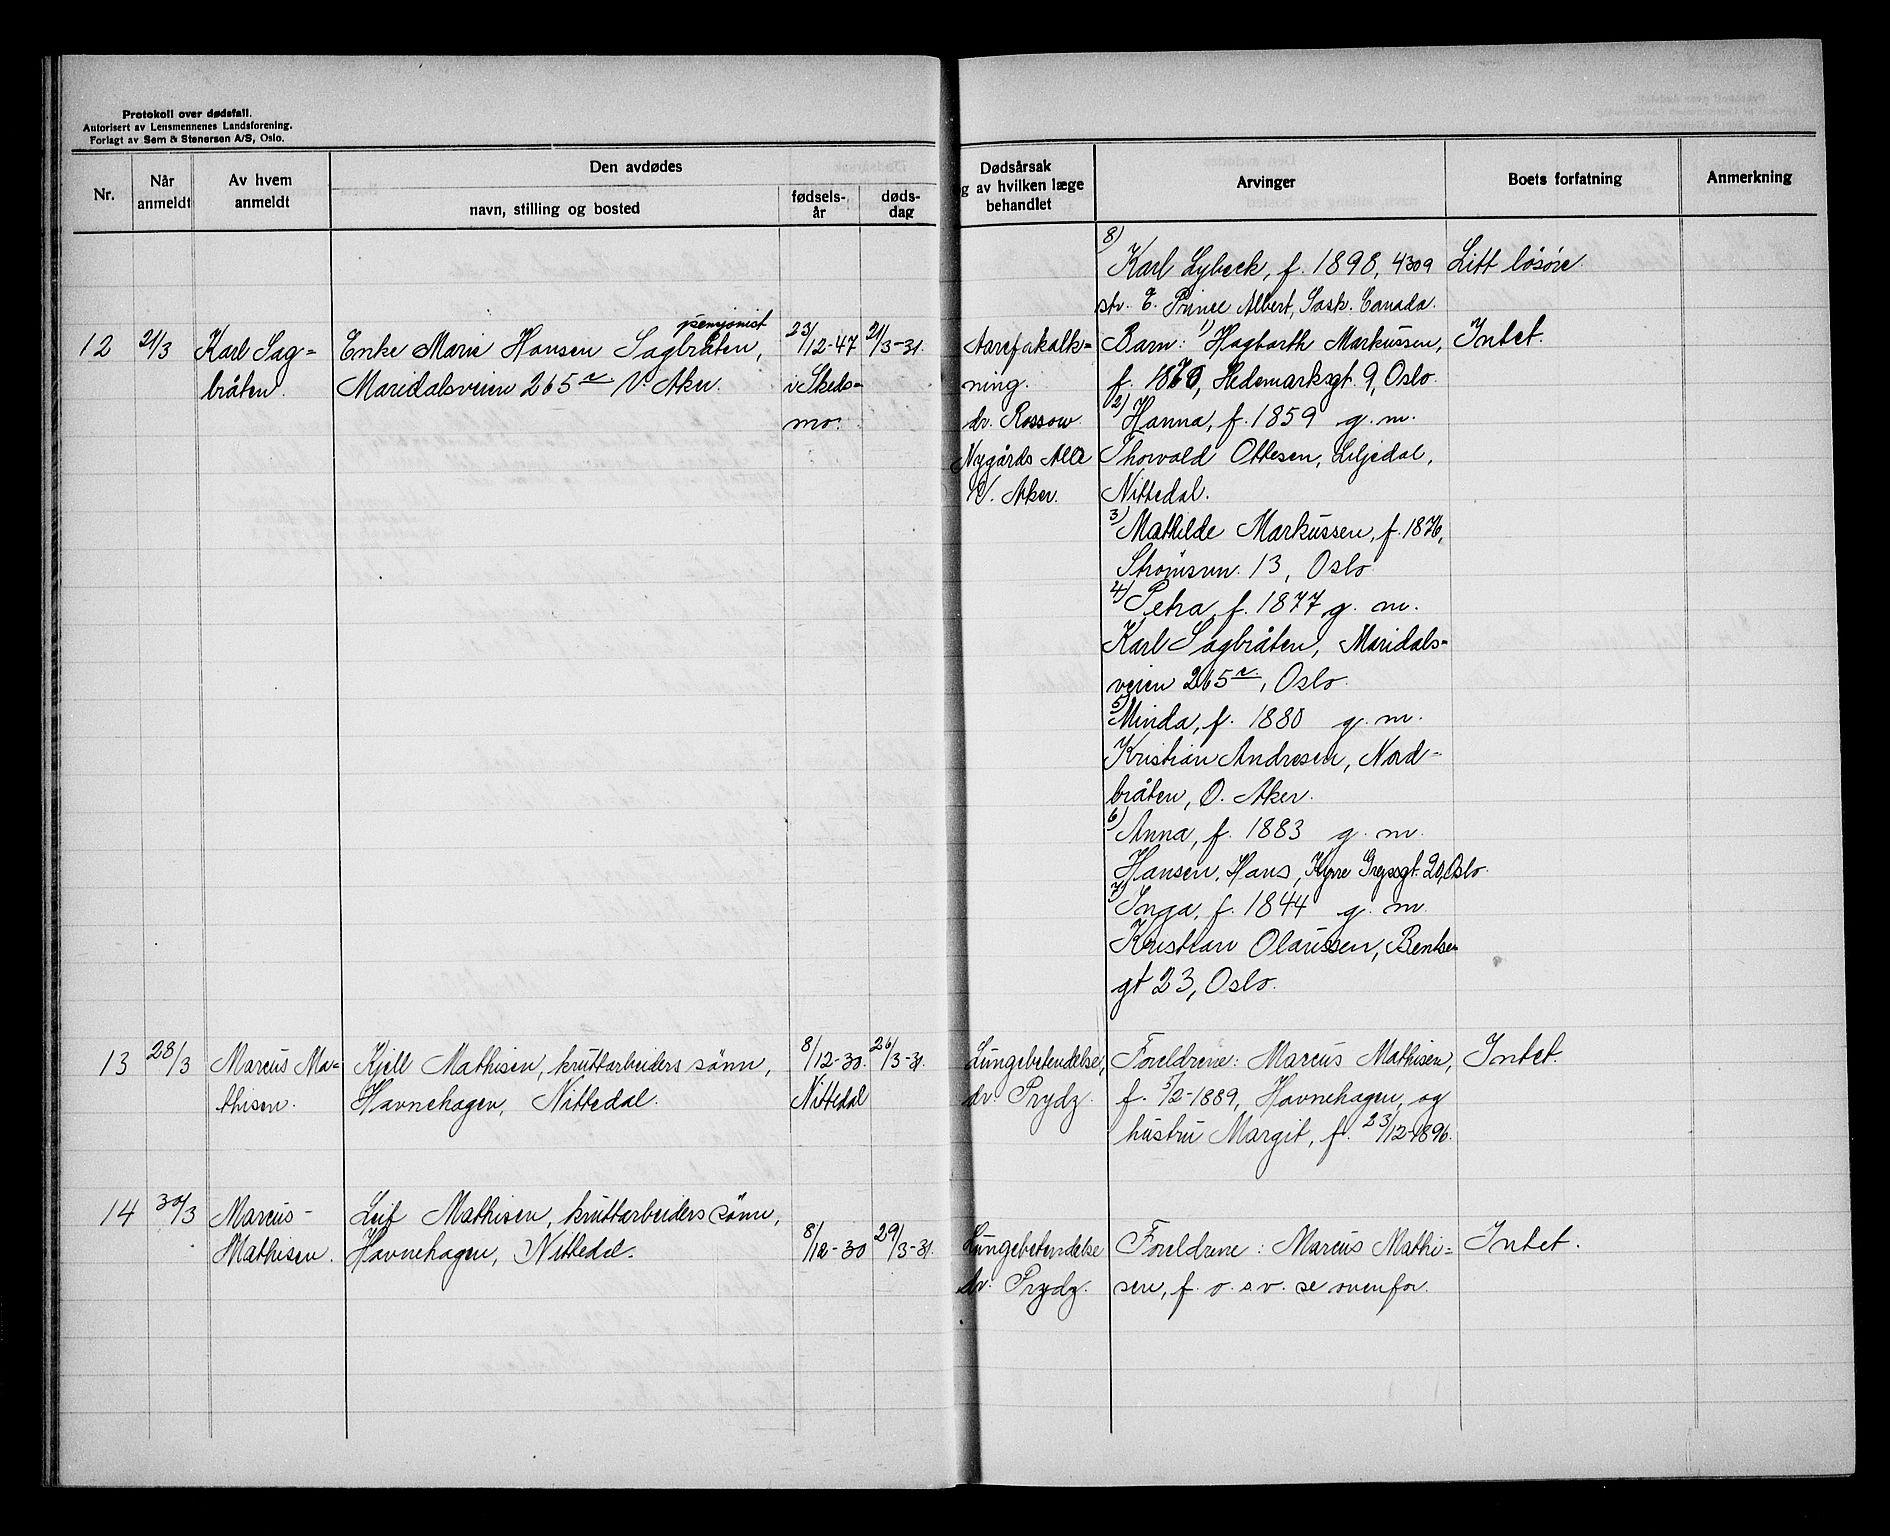 Protokoll over dødsfall.
Autorisert av Lensmennenes Landsforening.
Forlagt av Sem & Stenersen A/S, Oslo.
Nr.
Når anmeldt
Av hvem anmeldt
Den avdødes
navn, stilling og bosted
fødsels-år
døds-dag
Dødsårsak
og av hvilken læge
behandlet
Arvinger
Boets forfatning
Anmerkning
8) Karl Lybeck, f. 1898, 4309
str. E. Prince Albert, Sask. Canada.
Litt løsøre
12
21/3
Karl Sag=
bråten.
pensjonist
Enke Marie Hansen Sagbråten,
Maridalsveien 265 c V. Aker.
23/12-47
i Skeds-
mo.
21/3-31.
Aarefakalk=
ning.
dr. Rossow
Nygårds Allé
V. Aker.
Barn: 1) Hagbarth Markussen,
f. 1870, Hedemarksgt. 9, Oslo.
2) Hanna, f. 1859 g. m.
Thorvald Ottesen, Liljedal,
Nittedal.
3) Mathilde Markussen, f. 1876,
Strømsvn. 13, Oslo
4) Petra, f. 1877 g. m.
Karl Sagbråten, Maridals-
veien 265 c., Oslo.
5) Minda, f. 1880 g. m.
Kristian Andresen, Nord-
bråten, Ø. Aker.
6) Anna, f. 1883 g. m.
Hansen, Hans, Kyrre Greppsgt. 20, Oslo.
7) Inga, f. 1844 g. m
Kristian Olaussen, Bentse-
gt 23, Oslo.
Intet.
13
28/3
Marcus Ma=
thisen.
Kjell Mathisen, kruttarbeiders sønn,
Havnehagen, Nittedal.
8/12-30.
Nittedal
26/3-31.
Lungebetendelse,
dr. Prydz.
Foreldrene: Marcus Mathisen,
f. 5/2-1889, Havnehagen, og
hustru Margit, f. 23/12-1896.
Intet.
14
30/3
Marcus
Mathisen.
Leif Mathisen, kruttarbeiders sønn,
Havnehagen, Nittedal.
8/12-30
29/3-31.
Lungebetendelse
dr. Prydz.
Foreldrene: Marcus Mathi=
sen, f. o. s. v. se ovenfor.
Intet.